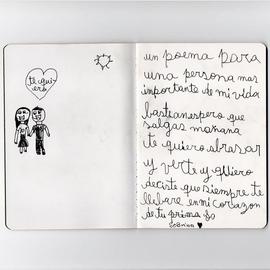 te qui
ero
un poema para
una persona mas
importante de mi vida
basteanespero que
salgas mañana
te quiero abrasar
y verte y quiero
decirte que siempre te
llebare en mi corazon
de tu prima